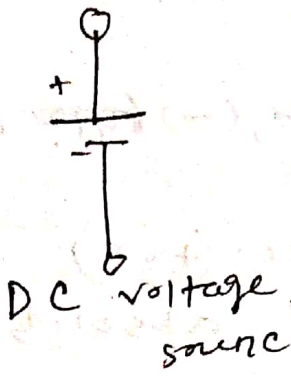 +
-
DC voltage
sourc